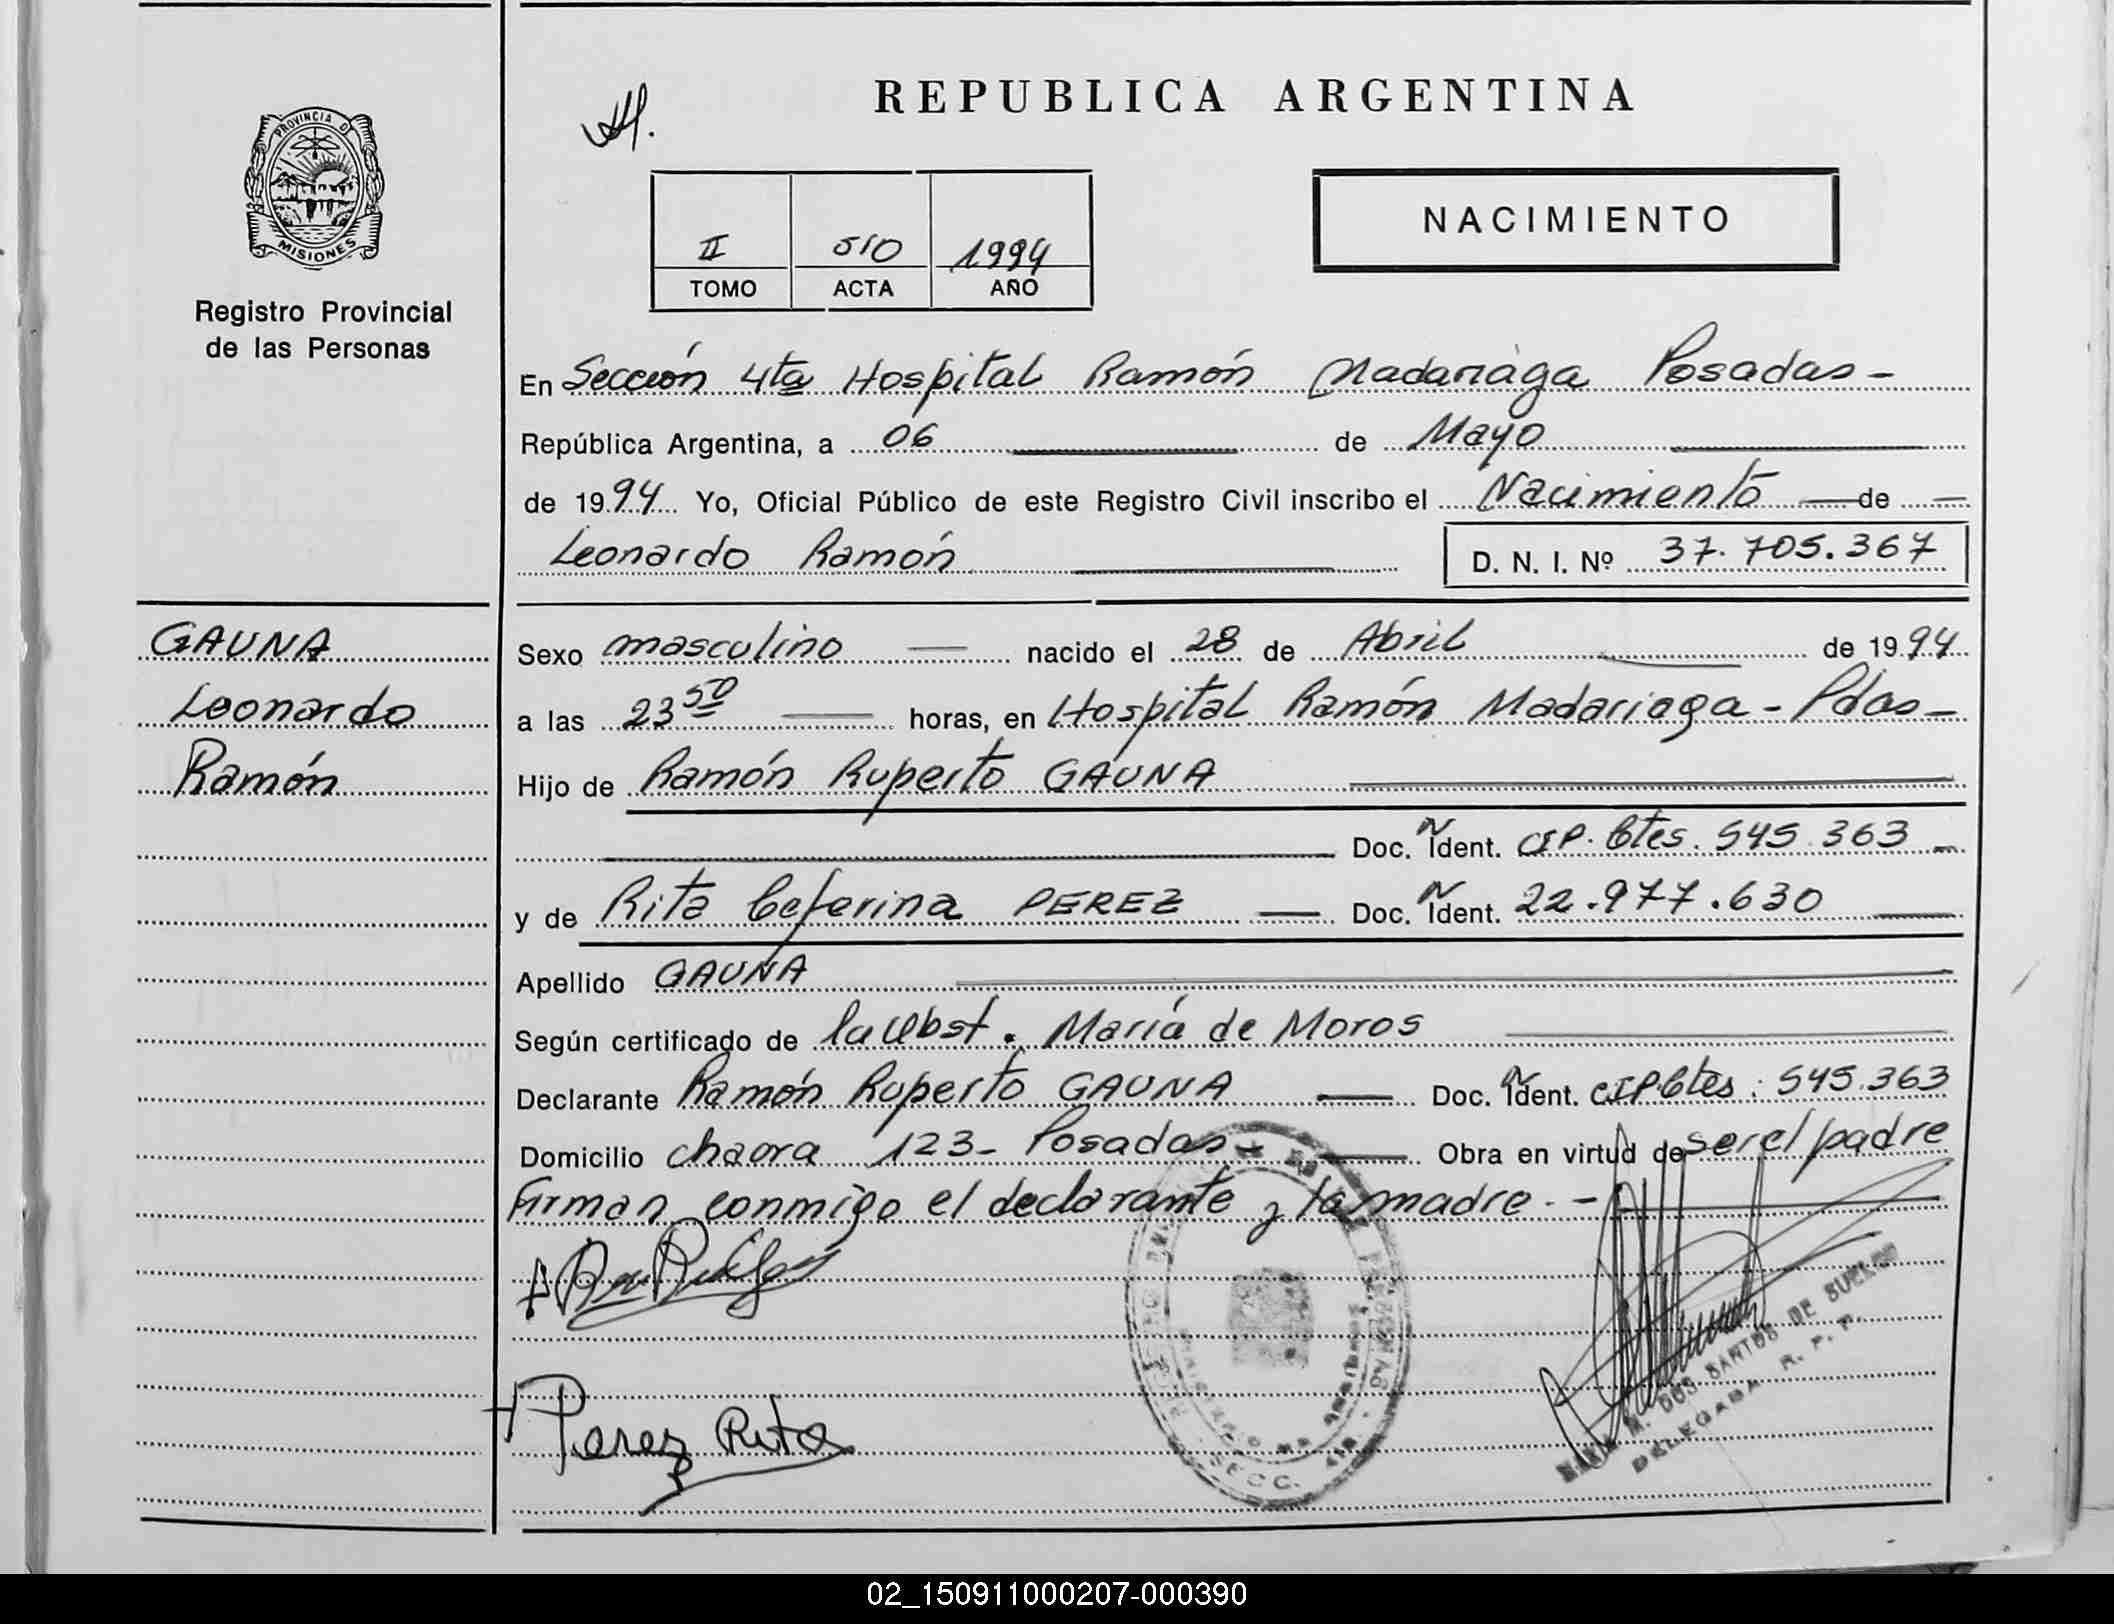 REPUBLICA ARGENTINA
PROVINCIA DE
MISIONES
Registro Provincial
de las Personas
II 510 1994
TOMO ACTA AÑO
NACIMIENTO
En Sección 4ta Hospital Ramón Madariaga Posadas-
República Argentina, a 06 de Mayo
de 1994 Yo, Oficial Público de este Registro Civil inscribo el Nacimiento de
Leonardo Ramón D. N. I. Nº 37.705.367
GAUNA
Leonardo
Ramón
Sexo masculino nacido el 28 de Abril de 1994
a las 23 50 horas, en Hospital Ramón Madariaga - Pdas-
Hijo de Ramón Ruperto GAUNA
Doc. Ident. CIP. Ctes. 545.363
y de Rita Ceferina PEREZ Doc. Ident. 22.977.630
Apellido GAUNA
Según certificado de la Obst. María de Moros
Declarante Ramón Ruperto GAUNA Doc. Ident. CIP. Ctes: 545.363
Domicilio chacra 123- Posadas Obra en virtud de ser el padre
Firman conmigo el declarante y la madre.-
Perez Rita
M. DOS SANTOS DE SUELDO
DELEGADA R. P. P.
SECC. 4ta.
02_150911000207-000390